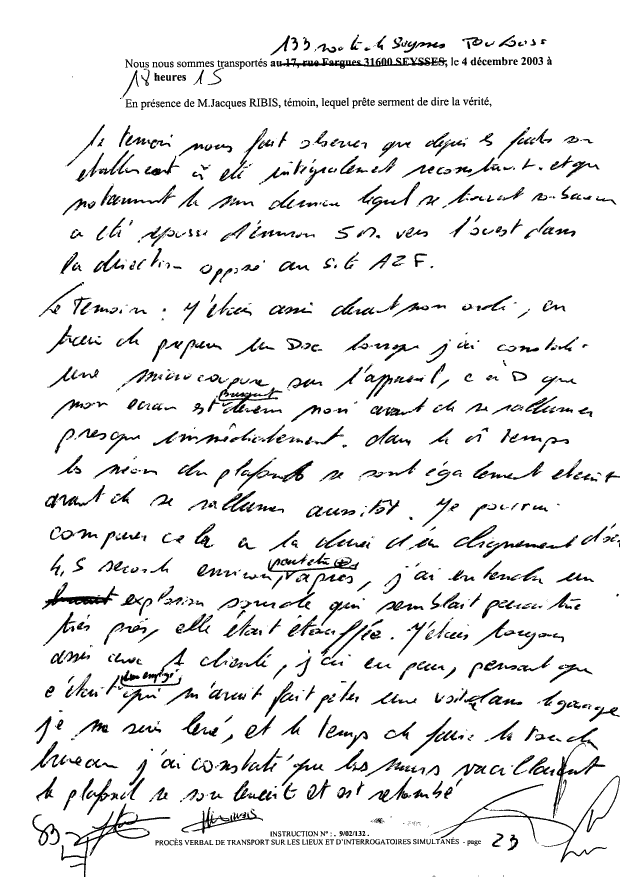 133 route de Seysses Toulouse
Nous nous sommes transportés au 17, rue Fargues 31600 SEYSSES, le 4 décembre 2003 à
18 heures 15
En présence de M.Jacques RIBIS, témoin, lequel prête serment de dire la vérité,
Le temoin nous fait observer que depuis les faits son
etablissement à été intégralement reconstruit et que
notamment le mur derrière lequel se trouvait
a été repoussé d'environ 5 m vers l'ouest dans
la direction opposé au site AZF.
Le Temoin : J'étais assis devant mon ordi, en
train de preparer un Doc lorsque j'ai constaté
une microcoupure sur l'appareil, c à D que
mon ecran est devenu noir avant de se rallumer
presque immédiatement. dans le m̂ temps
les néons du plafond se sont également eteint
avant de se rallumer aussitôt. Je pourrai
comparer cela a la durée d'un claquement
4,5 seconde environ, peut etre après, j'ai entendu un
explosion sourde qui semblait paraitre
très près, elle était étouffée. J'étais toujours
assis avec 1 cliente, j'ai eu peur, pensant que
c'était un employé qui m'avait fait péter une voiture dans le garage
je me suis levé, et le temps de faire le tour du
bureau j'ai constaté que les murs vacillaient
le plafond se soulevait et est retombé
INSTRUCTION N° : . 9/02/132 .
PROCÈS VERBAL DE TRANSPORT SUR LES LIEUX ET D'INTERROGATOIRES SIMULTANÉS - page 23